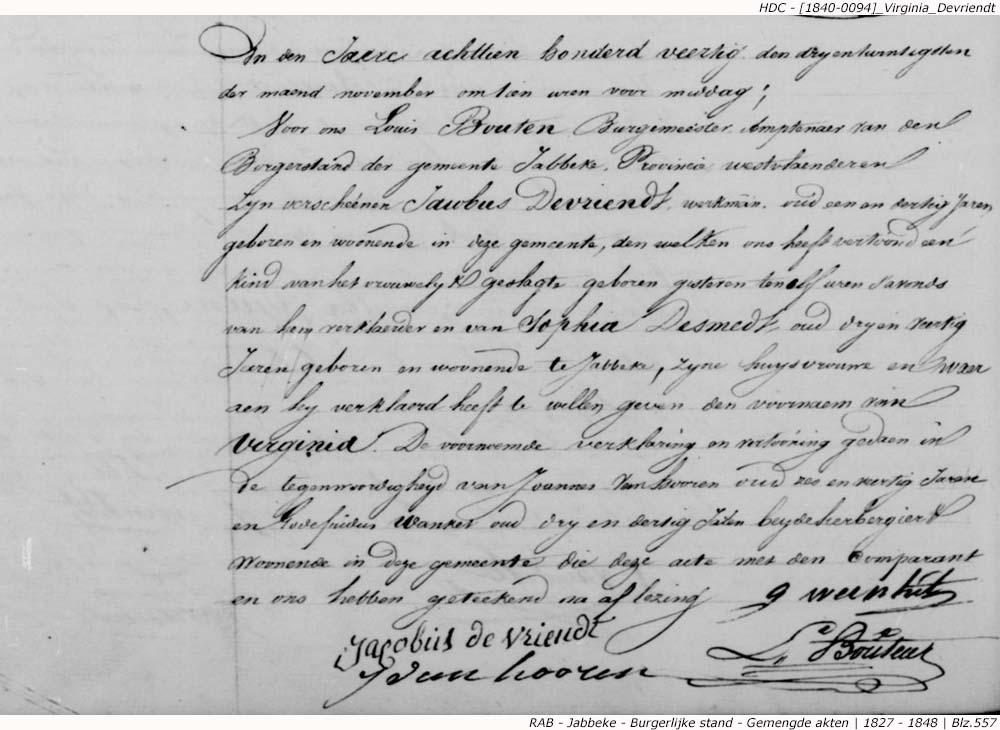 HDC - [1840-0094]_Virginia_Devriendt
In den Jaere achttien honderd veertig den dryentwintigsten
der maend november om tien uren voor middag;
Voor ons Louis Bouten Burgemeester Amptenaer van den
Borgerstand der gemeente Jabbeke, Provincie westvlaenderen
Zyn verscheenen Jacobus Devriendt, werkman, oud een en dertig Jaren
geboren en woonende in deze gemeente, den welken ons heeft vertoond een
kind van het vrouwelyk geslagte geboren gisteren ten elf uren s'avonds
van hem verklaerder en van Sophia Desmedt, oud dry en veertig
Jaren geboren en woonende te Jabbeke, zyne huysvrouwe en waer
aen hy verklaerd heeft te willen geven den voornaem van
Virginia. De voornoemde verklaring en vertooning gedaen in
de tegenwoordigheyd van Joannes Vanhooren oud zes en veertig Jaren
en Godefridus Wanket oud dry en dertig Jaren beyde herbergiers
woonende in deze gemeente die deze acte met den Comparant
en ons hebben geteekend na aflezing
Jacobus de Vriendt
Van hooren
L. Bouten
RAB - Jabbeke - Burgerlijke stand - Gemengde akten | 1827 - 1848 | Blz.557